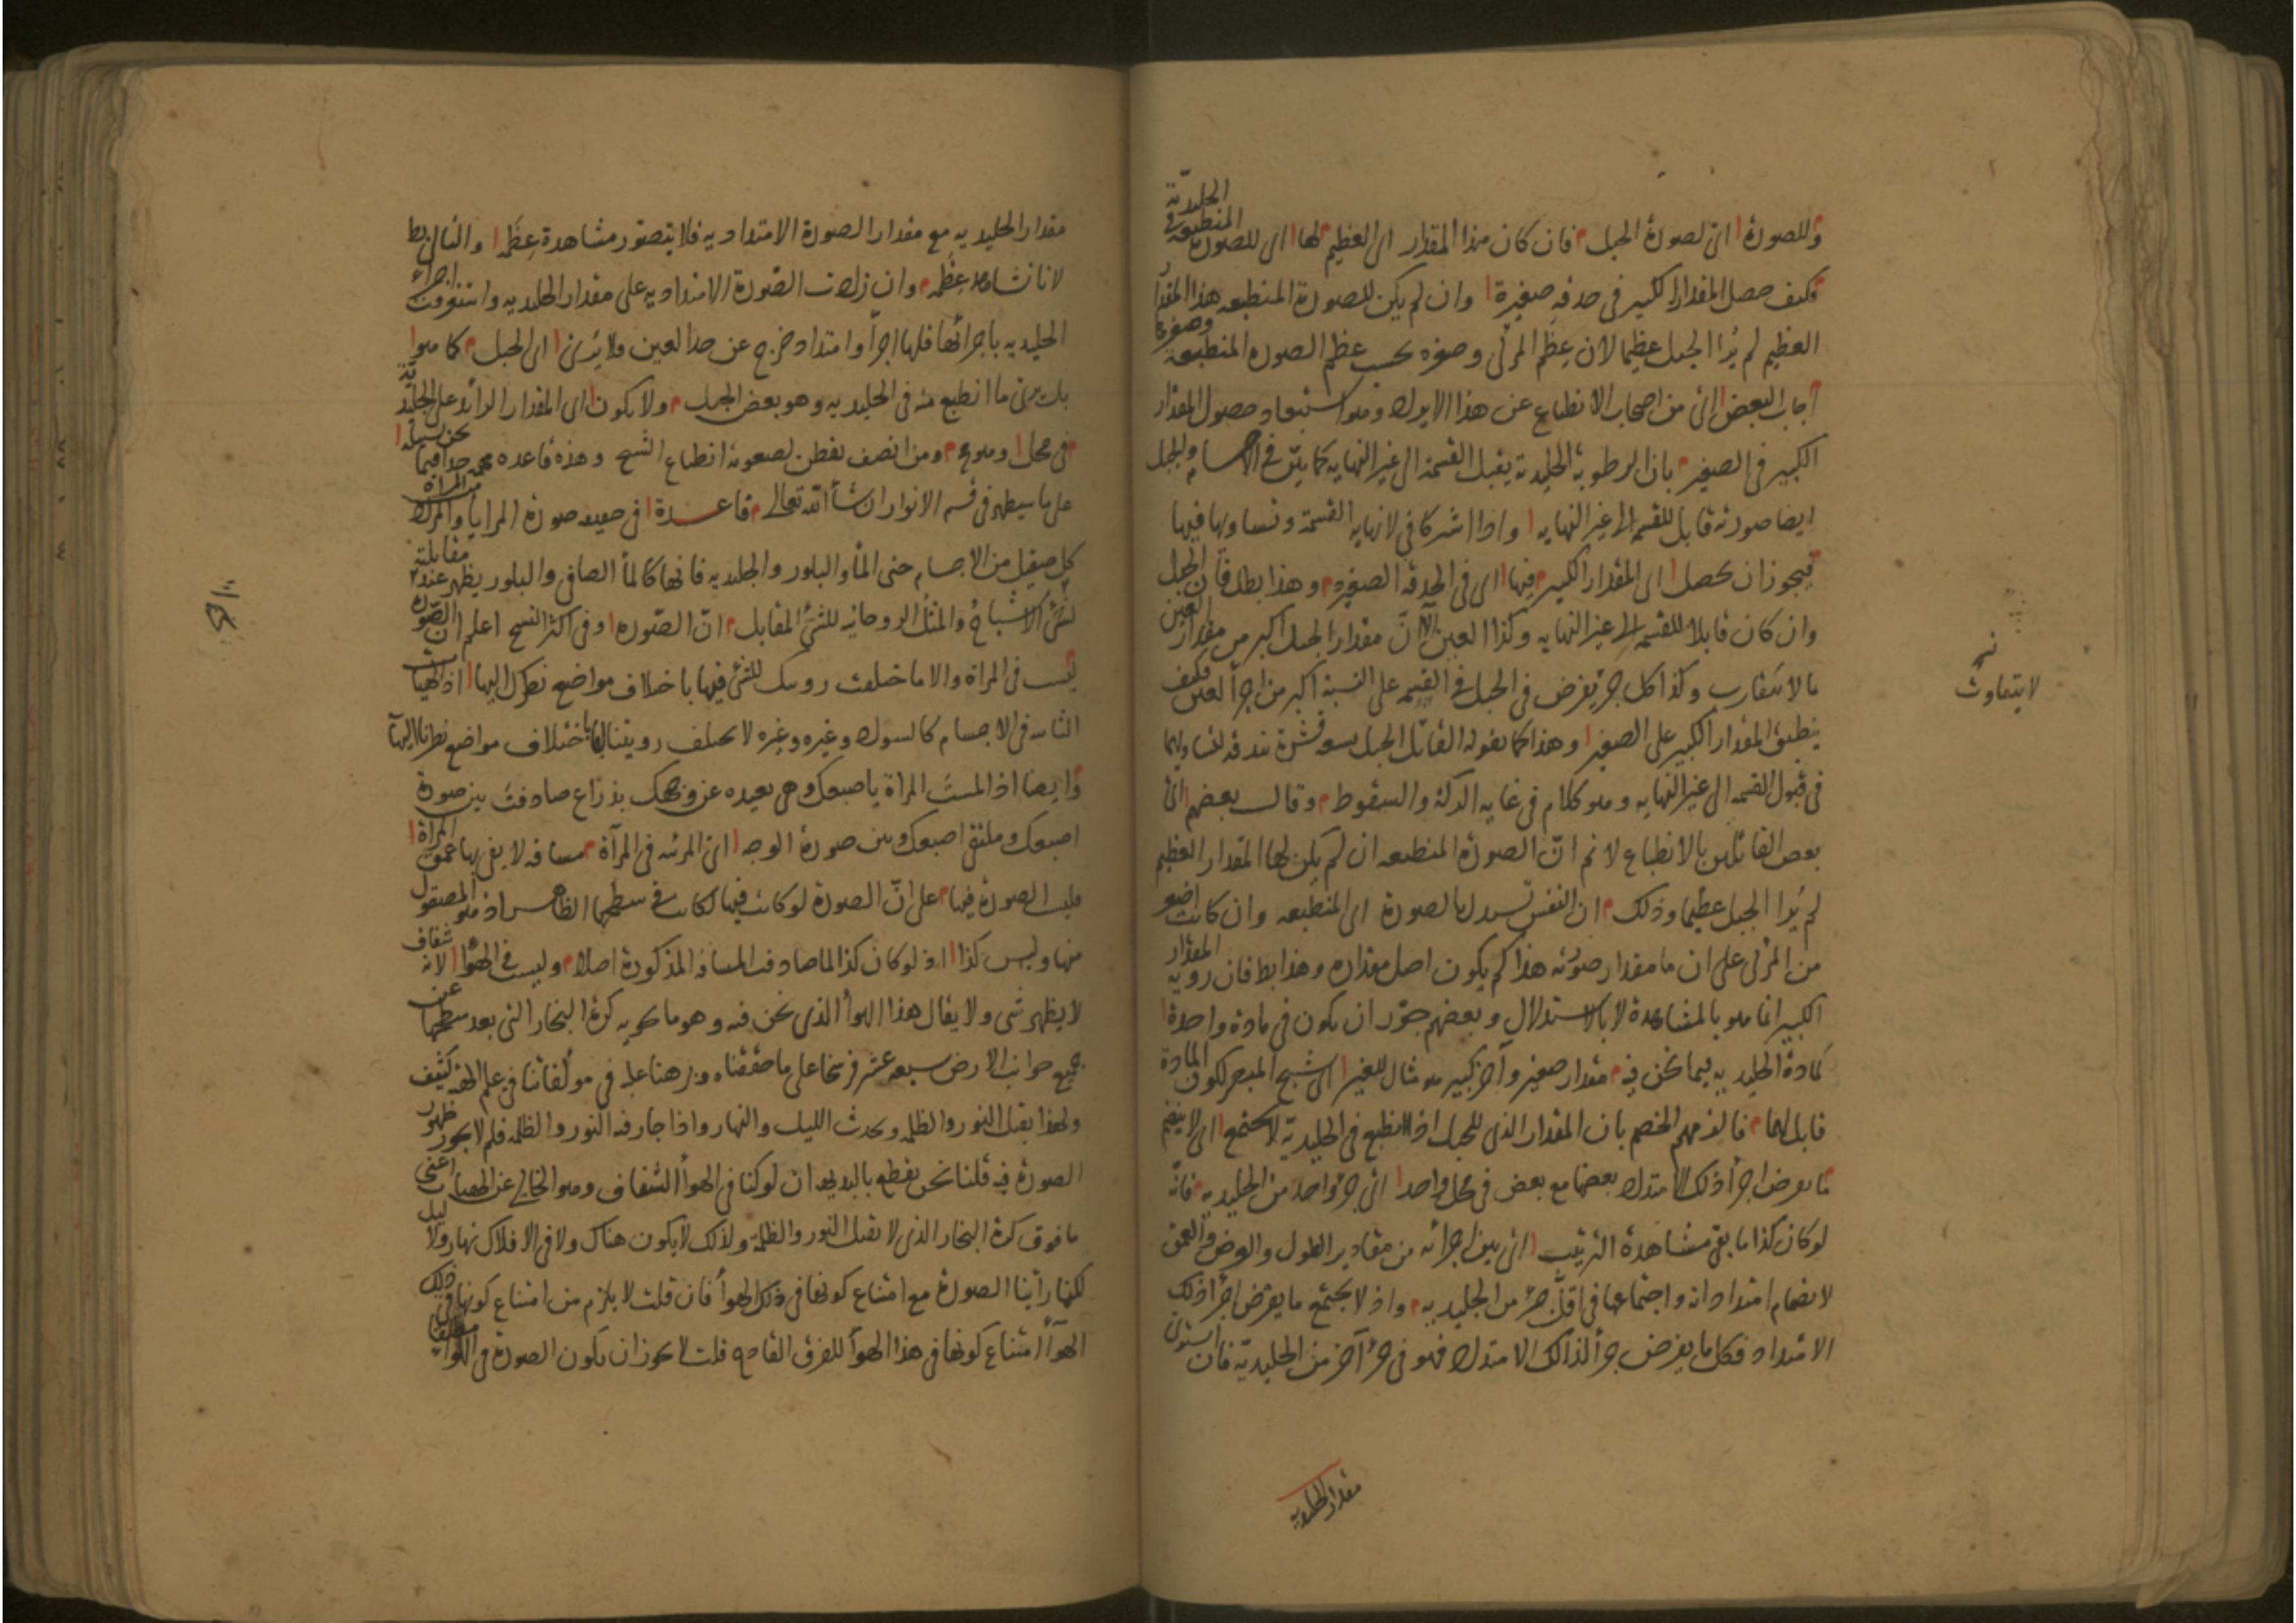 وللصورة اى لصورة الجبل فان كان هذا المقدار اى العظيم لها اى للصورة المنطبعة فى الجليدية
فكيف حصل المقدار الكبير فى حدقه صغيرة وان لم يكن للصورة المنطبعه هذا المقدار
العظيم لم يُرا الجبل عظيما لان عِظَم المرئى وصغره بحسب عظم الصورة المنطبعة وصغرها
اجاب البعض اى من اصحاب الانطباع عن هذا الايراد وهو استبعاد حصول المقدار
الكبير فى الصغير بان الرطوبة الجليدية يقبل القسمة الى غير النهايه كما بيّن فى الاجسام والجبل
ايضا صورته قابل للقسمه الى غير النهايه واذا اشتركا فى لا نهايه القسمة وتساويها فيها
فيجوز ان يحصل اى المقدار الكبير فيها اى فى الحدقه الصغيره وهذا بطل فان الجبل
وان كان قابلا للقسمه الى غير النهايه وكذا العين الّا انّ مقدار الجبل اكبر من مقدار العين
ما لا يتقارب وكذا كل جزء يفرض فى الجبل فى القسمه على النسبة اكبر من اجزأ العين فكيف
ينطبق المقدار الكبير على الصغير وهذا كما يقوله القائل الجبل يسعه قشرة بندقه لتساويهما
فى قبول القسمه الى غير النهايه وهو كلام فى غايه الركة والسقوط وقال بعضهم اى
بعض القائلين بالانطباع لا نم انّ الصورة المنطبعه ان لم يكن لها المقدار العظيم
لم يُرا الجبل عظيما وذلك ان النفس تستدل بالصورة اى المنطبعه وان كانت اصغر
من المرئى على ان ما مقدار صورته هذا كم يكون اصل مقداره وهذا بط فان رويه المقدار
الكبير انما هو بالمشاهدة لا بالاستدلال وبعضهم جوّز ان يكون فى مادة واحدة
كمادة الجليديه فيما نحن فيه مقدار صغير وآخر كبير هو مثال للغير اى شبح المبصر لكون المادة
قابل لهما فالزمهم الخصم بان المقدار الذى للجبل اذا انطبع فى الجليدية لا يجتمع اى لا ينضم
ما يعرض اجزأ ذلك الامتداد بعضها مع بعض فى محل واحد اى جزء واحد من الجليديه فانّه
لو كان كذا ما بقى مشاهدة الترتيب اى بين اجزائه من مقادير الطول والعرض والعمق
لانضمام امتداداته واجتماعها فى اقلّ جزء من الجليديه واذ لا يجتمع ما يفرض اجزأ ذلك
الامتداد فكل ما يفرض جزأ لذلك الامتداد فهو فى جزء آخر من الجليدية فان استوى
مقدار الجليديه
لا يتفاوت
مقدار الجليديه مع مقدار الصورة الامتداديه فلا يتصور مشاهدة عِظَمه والتالى بط
لانا نشاهد عِظَمه وان زادت الصّورة الامتداديه على مقدار الجليديه واستغرقت اجزاء
الجليديه باجزائها فلها اجزأ وامتداد خرج عن حد العين فلا يُرى اى الجبل كما هو
بل يرى ما انطبع منه فى الجليديه وهو بعض الجبل ولا يكون اى المقدار الزائد على الجليدية
فى محل وهو مح ومن انصف تفطن لصعوبة انطباع الشبح وهذه قاعده مهمه جدا فيما نحن بسبيله
على ما سيظهر فى قسم الانوار ان شأ الله تعالى قاعدة فى حقيقه صورة المرايا
كل صقيل من الاجسام حتى المأ والبلور والجليديه فانها كالمأ الصافى والبلور يظهر عند مقابلته
لشئ الاشباح والمثل الروحانيه للشئ المقابل انّ الصّوره وفى اكثر النسخ اعلم ان الصورة
ليست فى المرآة والا ما اختلفت رويتك للشئ فيها باختلاف مواضع نظرك اليها اذ الهيأت
الثابته فى الاجسام كالسواد وغيره وغيره لا يختلف رويتنا لها باختلاف مواضع نظرنا اليها
وايضا اذا لمستَ المرآة باصبعك وهى بعيده عن وجهك بذراع صادفت بين صورة
اصبعك وملتقى اصبعك وبين صورة الوجه اى المرئيه فى المرآة مسافه لا يفى بها عمق المرآة
فليست الصورة فيها على انّ الصورة لو كانت فيها لكانت فى سطحها الظاهر اذ هو المصقول
منها وليس كذا اذ لو كان كذا لما صادفت المسافة المذكورة اصلا وليست فى الهوأ لانه شفاف
لا يظهر شى ولا يقال هذا الهوأ الذى نحن فيه وهو ما يحويه كرة البخار التى بعد سطحها عن
جميع جوانب الارض سبعه عشر فرسخا على ما حققناه وبرهنا عليه فى مولفاتنا فى علم الهيئه كثيف
ولهذا يقبل النور والظلمه ويحدث الليل والنهار واذا جاز فيه النور والظلمه فلم لا يجوز ظهور
الصورة فيه قلنا نحن نقطع بالبديهه ان لو كنا فى الهوأ الشفاف وهو الخالى عن الهبات اعنى
ما فوق كرة البخار الذى لا يقبل النور والظلمة ولذلك لا يكون هناك ولا فى الافلاك نهار ولا ليل
لكنها راينا الصورة مع امتناع كونها فى ذلك الهوأ فان قلت لا يلزم من امتناع كونها فى ذلك
الهوأ امتناع كونها فى هذا الهوأ للفرق القادح قلت لا يجوز ان يكون الصورة فى الهوأ مطلقا